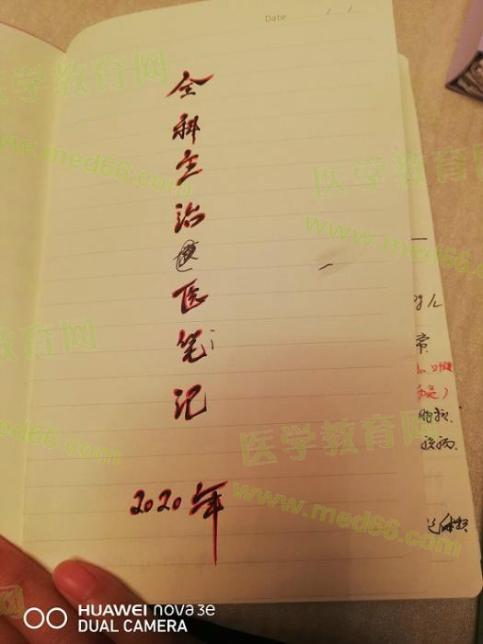 Date / /
全科主治医笔记
2020年
医学教育网
www.med66.com
医学教育网
www.med66.com
医学教育网
www.med66.com
HUAWEI nova 3e
DUAL CAMERA